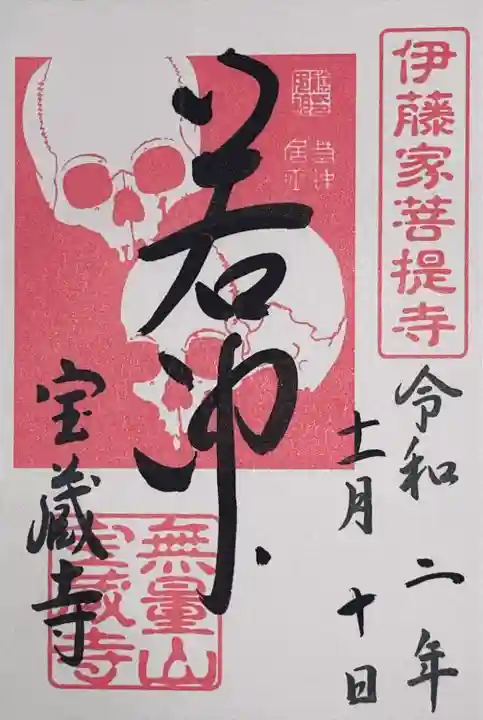 伊藤家菩提寺
令和二年
十一月十日
若冲居士
若冲
宝蔵寺
無量山
宝蔵寺